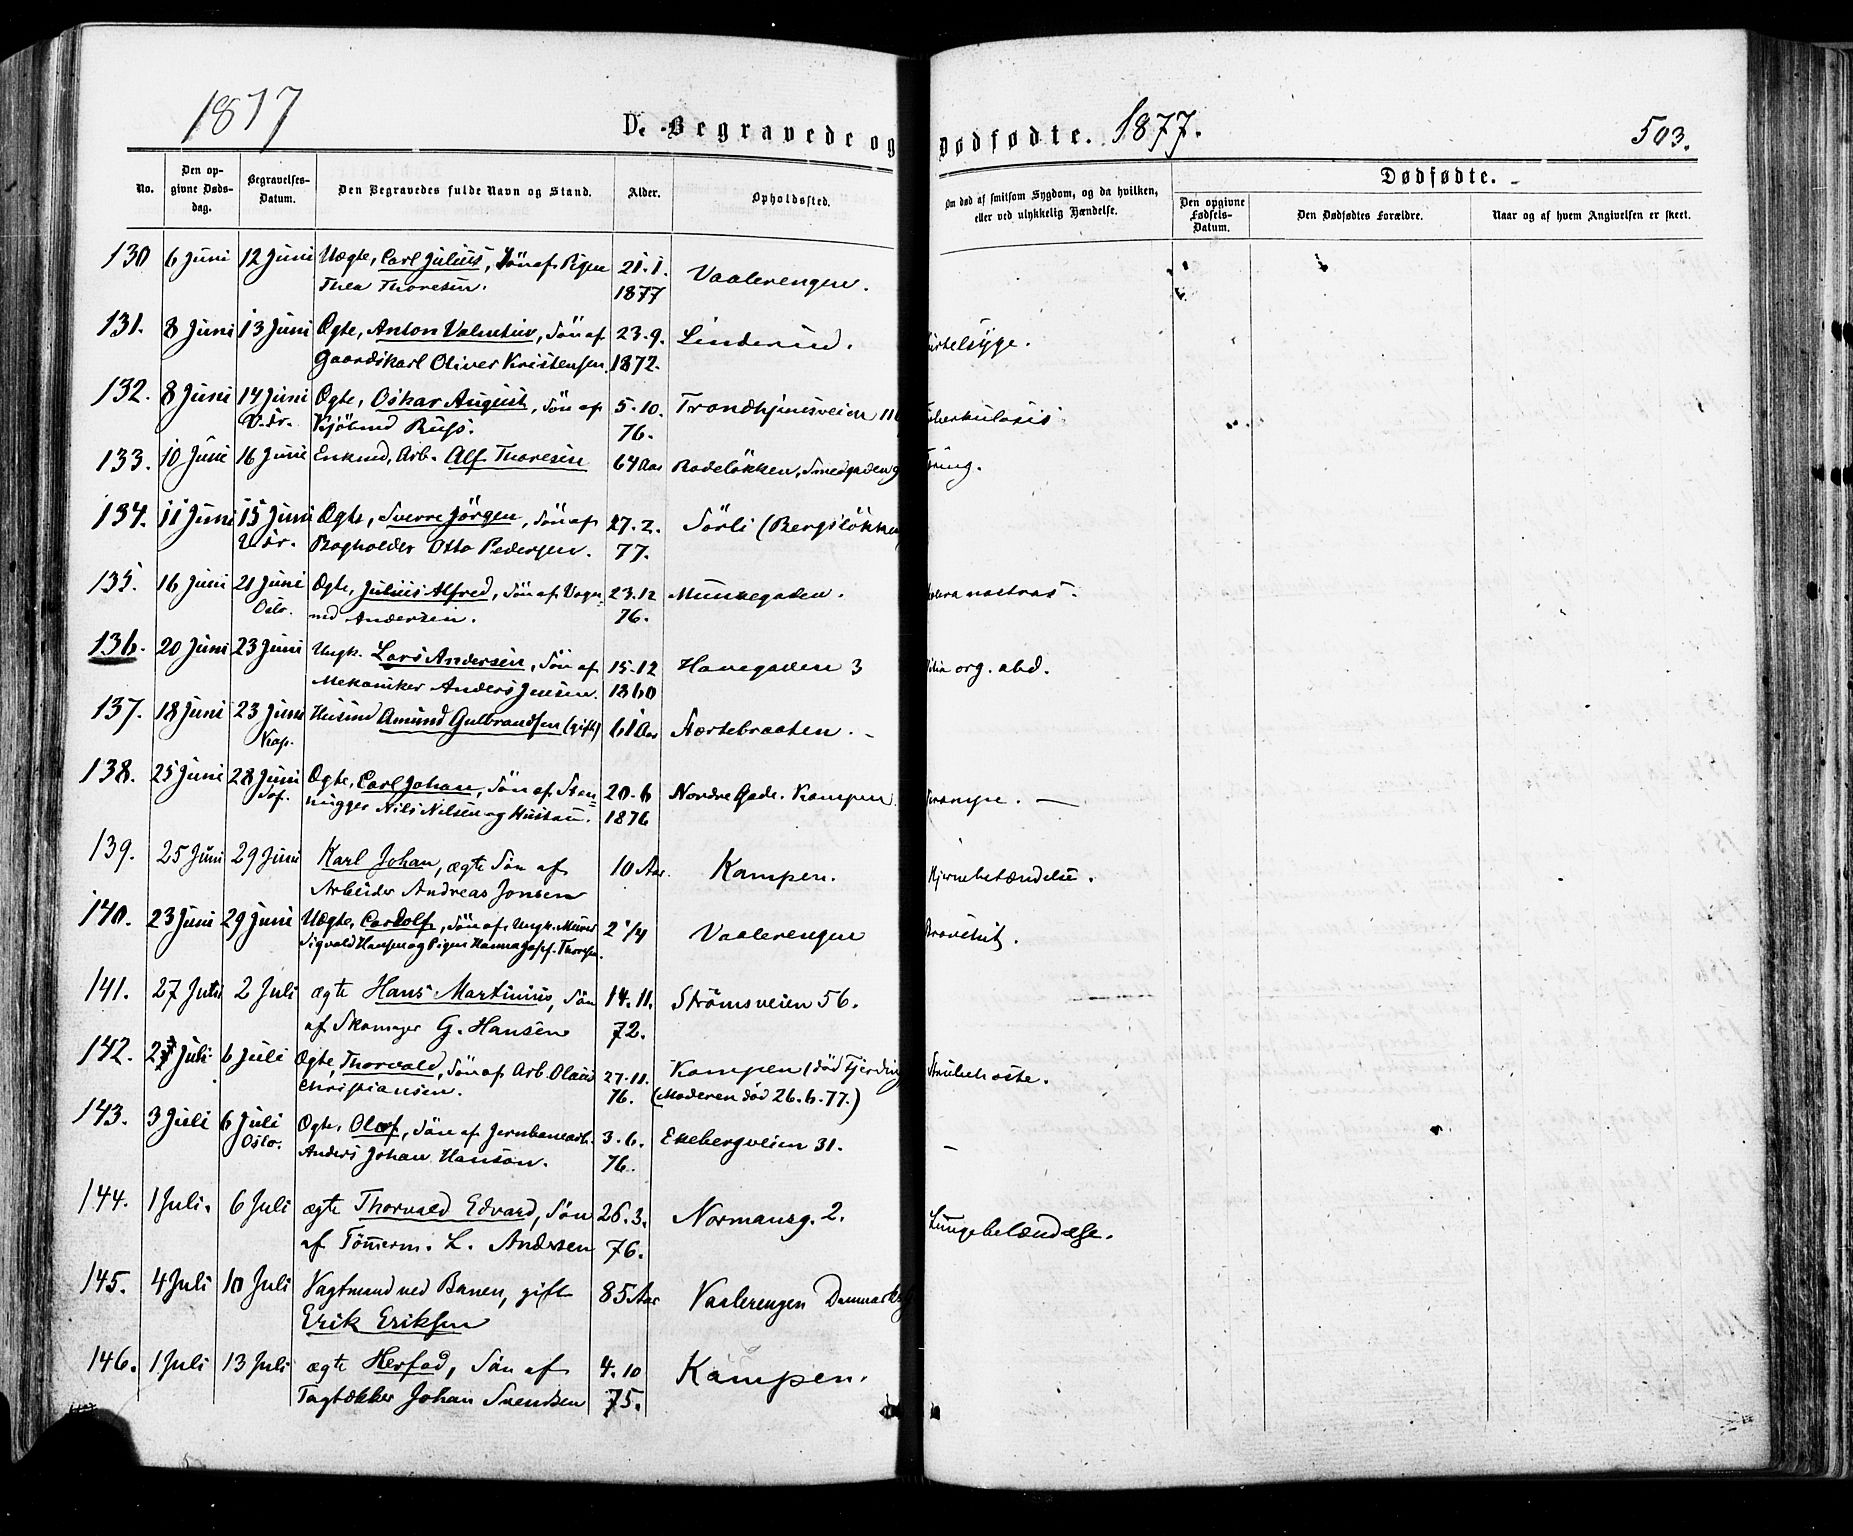 1877
D. Begravede og Dødfødte. 1877. 503.
No. Den opgivne Dødsdag. Begravelses-Datum. Den Begravedes fulde Navn og Stand. Alder. Opholdssted. Om død af smitsom Sygdom, og da hvilken, eller ved ulykkelig Hændelse. Dødfødte.
Den opgivne Fødsels-Datum. Den Dødfødtes Forældre. Naar og af hvem Angivelsen er skeet.
130 6 Juni 12 Juni Uægte, Carl Julius, Sön af Pigen 21.1.
Thea Thoresen. 1877 Vaalerengen.
131. 8 Juni 13 Juni Ægte, Anton Valentin, Sön af 23.9. Linderud.
Gaardskarl Oliver Kristensen. 1872.
132. 8 Juni 14 Juni Ægte, Oskar August, Sön af 5.10. Trondhjemsveien
V. Fr. Kjöbmd Russ. 76.
133. 10 Juni 16 Juni Enkmd, Arb. Alf Thoresen 64 Aar Rodelökken, Smedgaden
134. 11 Juni 15 Juni Ægte, Sverre Jörgen, Sön af 27.2. Sörli (Bergslökken
V. Fr. Bogholder Otto Pedersen. 77.
135. 16 Juni 21 Juni Ægte, Julius Alfred, Sön af Vogn= 23.12 Munkegaden. nostras.
Oslo. md Andersen. 76.
136. 20 Juni 23 Juni Ungk. Lars Andersen, Sön af 15.12 Havegaden 3 org. abd.
Mekaniker Anders Jensen. 1860
137. 18 Juni 23 Juni Husmd Amund Gulbrandsen (gift) 61 Aar Stærtebraaten.
Kap.
138. 25 Juni 28 Juni Ægte, Carl Johan, Sön af Sten= 20.6 Nordre Gade. Kampen. Krampe.
Sof. hugger Nils Nilsen og Hustru. 1876
139. 25 Juni 29 Juni Karl Johan, ægte Sön af 10 Aar. Kampen. Hjernebetændelse.
Arbeider Andreas Jonsen
140. 23 Juni 29 Juni Uægte, Cardolf, Sön af Ungk. Murer 2 1/4 Vaalerengen
Sigvald Hansen og Pigen Hanna Josef. Thoresen.
141. 27 Juni 2 Juli ægte Hans Martinius, Sön 14.11. Strömsveien 56.
af Skomager G. Hansen 72.
142. Juli 6 Juli Ægte, Thorvald, Sön af Arb. Olaus 27.11. Kampen (död Fjerding Strubehoste.
Christiansen. 76. (Moderen död 26.6.77.)
143. 3 Juli 6 Juli Ægte, Olaf, Sön af Jernbanearb. 3.6. Ekebergveien 31. –
Oslo. Anders Johan Hanson. 76.
144. 1 Juli. 6 Juli ægte Thorvald Edvard, Sön 26.3. Normansg. 2. Lungebetændelse.
af Tömmerm. L. Andersen 76.
145. 4 Juli 10 Juli Vagtmand ved Banen, gift 85 Aar Vaalerengen Danmarks
Erik Eriksen
146. 1 Juli 13 Juli ægte Herfod, Sön af 4.10 Kampen.
Tagtækker Johan Svendsen 75.